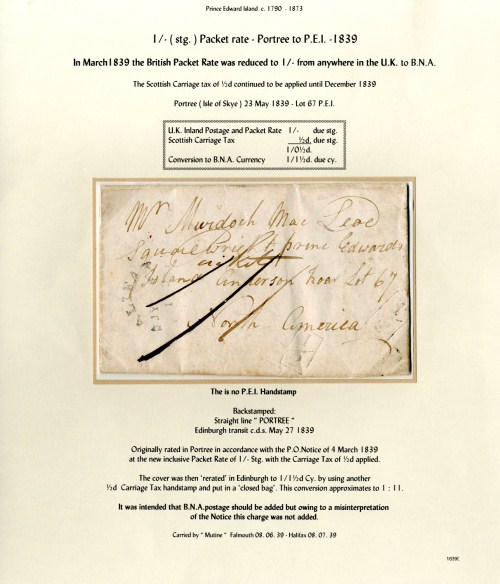 Prince Edward Island c. 1790 - 1873
1/- ( stg. ) Packet rate - Portree to P.E.I. -1839
In March1839 the British Packet Rate was reduced to 1/- from anywhere in the U.K. to B.N.A.
The Scottish Carriage tax of ½d continued to be applied until December 1839
Portree ( Isle of Skye ) 23 May 1839 - Lot 67 P.E.I.
U.K. Inland Postage and Packet Rate 1/- due stg.
Scottish Carriage Tax ½d. due stg.
1/0½d.
Conversion to B.N.A. Currency 1/1½d. due cy.
Mr Murdoch Mac Leod
prince Edwards
Island Anderson Road Lot 67
North America
The is no P.E.I. Handstamp
Backstamped:
Straight line " PORTREE "
Edinburgh transit c.d.s. May 27 1839
Originally rated in Portree in accordance with the P.O.Notice of 4 March 1839
at the new inclusive Packet Rate of 1/- Stg. with the Carriage Tax of ½d applied.
The cover was then 'rerated' in Edinburgh to 1/1½d Cy. by using another
½d Carriage Tax handstamp and put in a 'closed bag'. This conversion approximates to 1 : 11.
It was intended that B.N.A.postage should be added but owing to a misinterpretation
of the Notice this charge was not added.
Carried by " Mutine " Falmouth 08. 06. 39 - Halifax 08. 07. 39
1839E